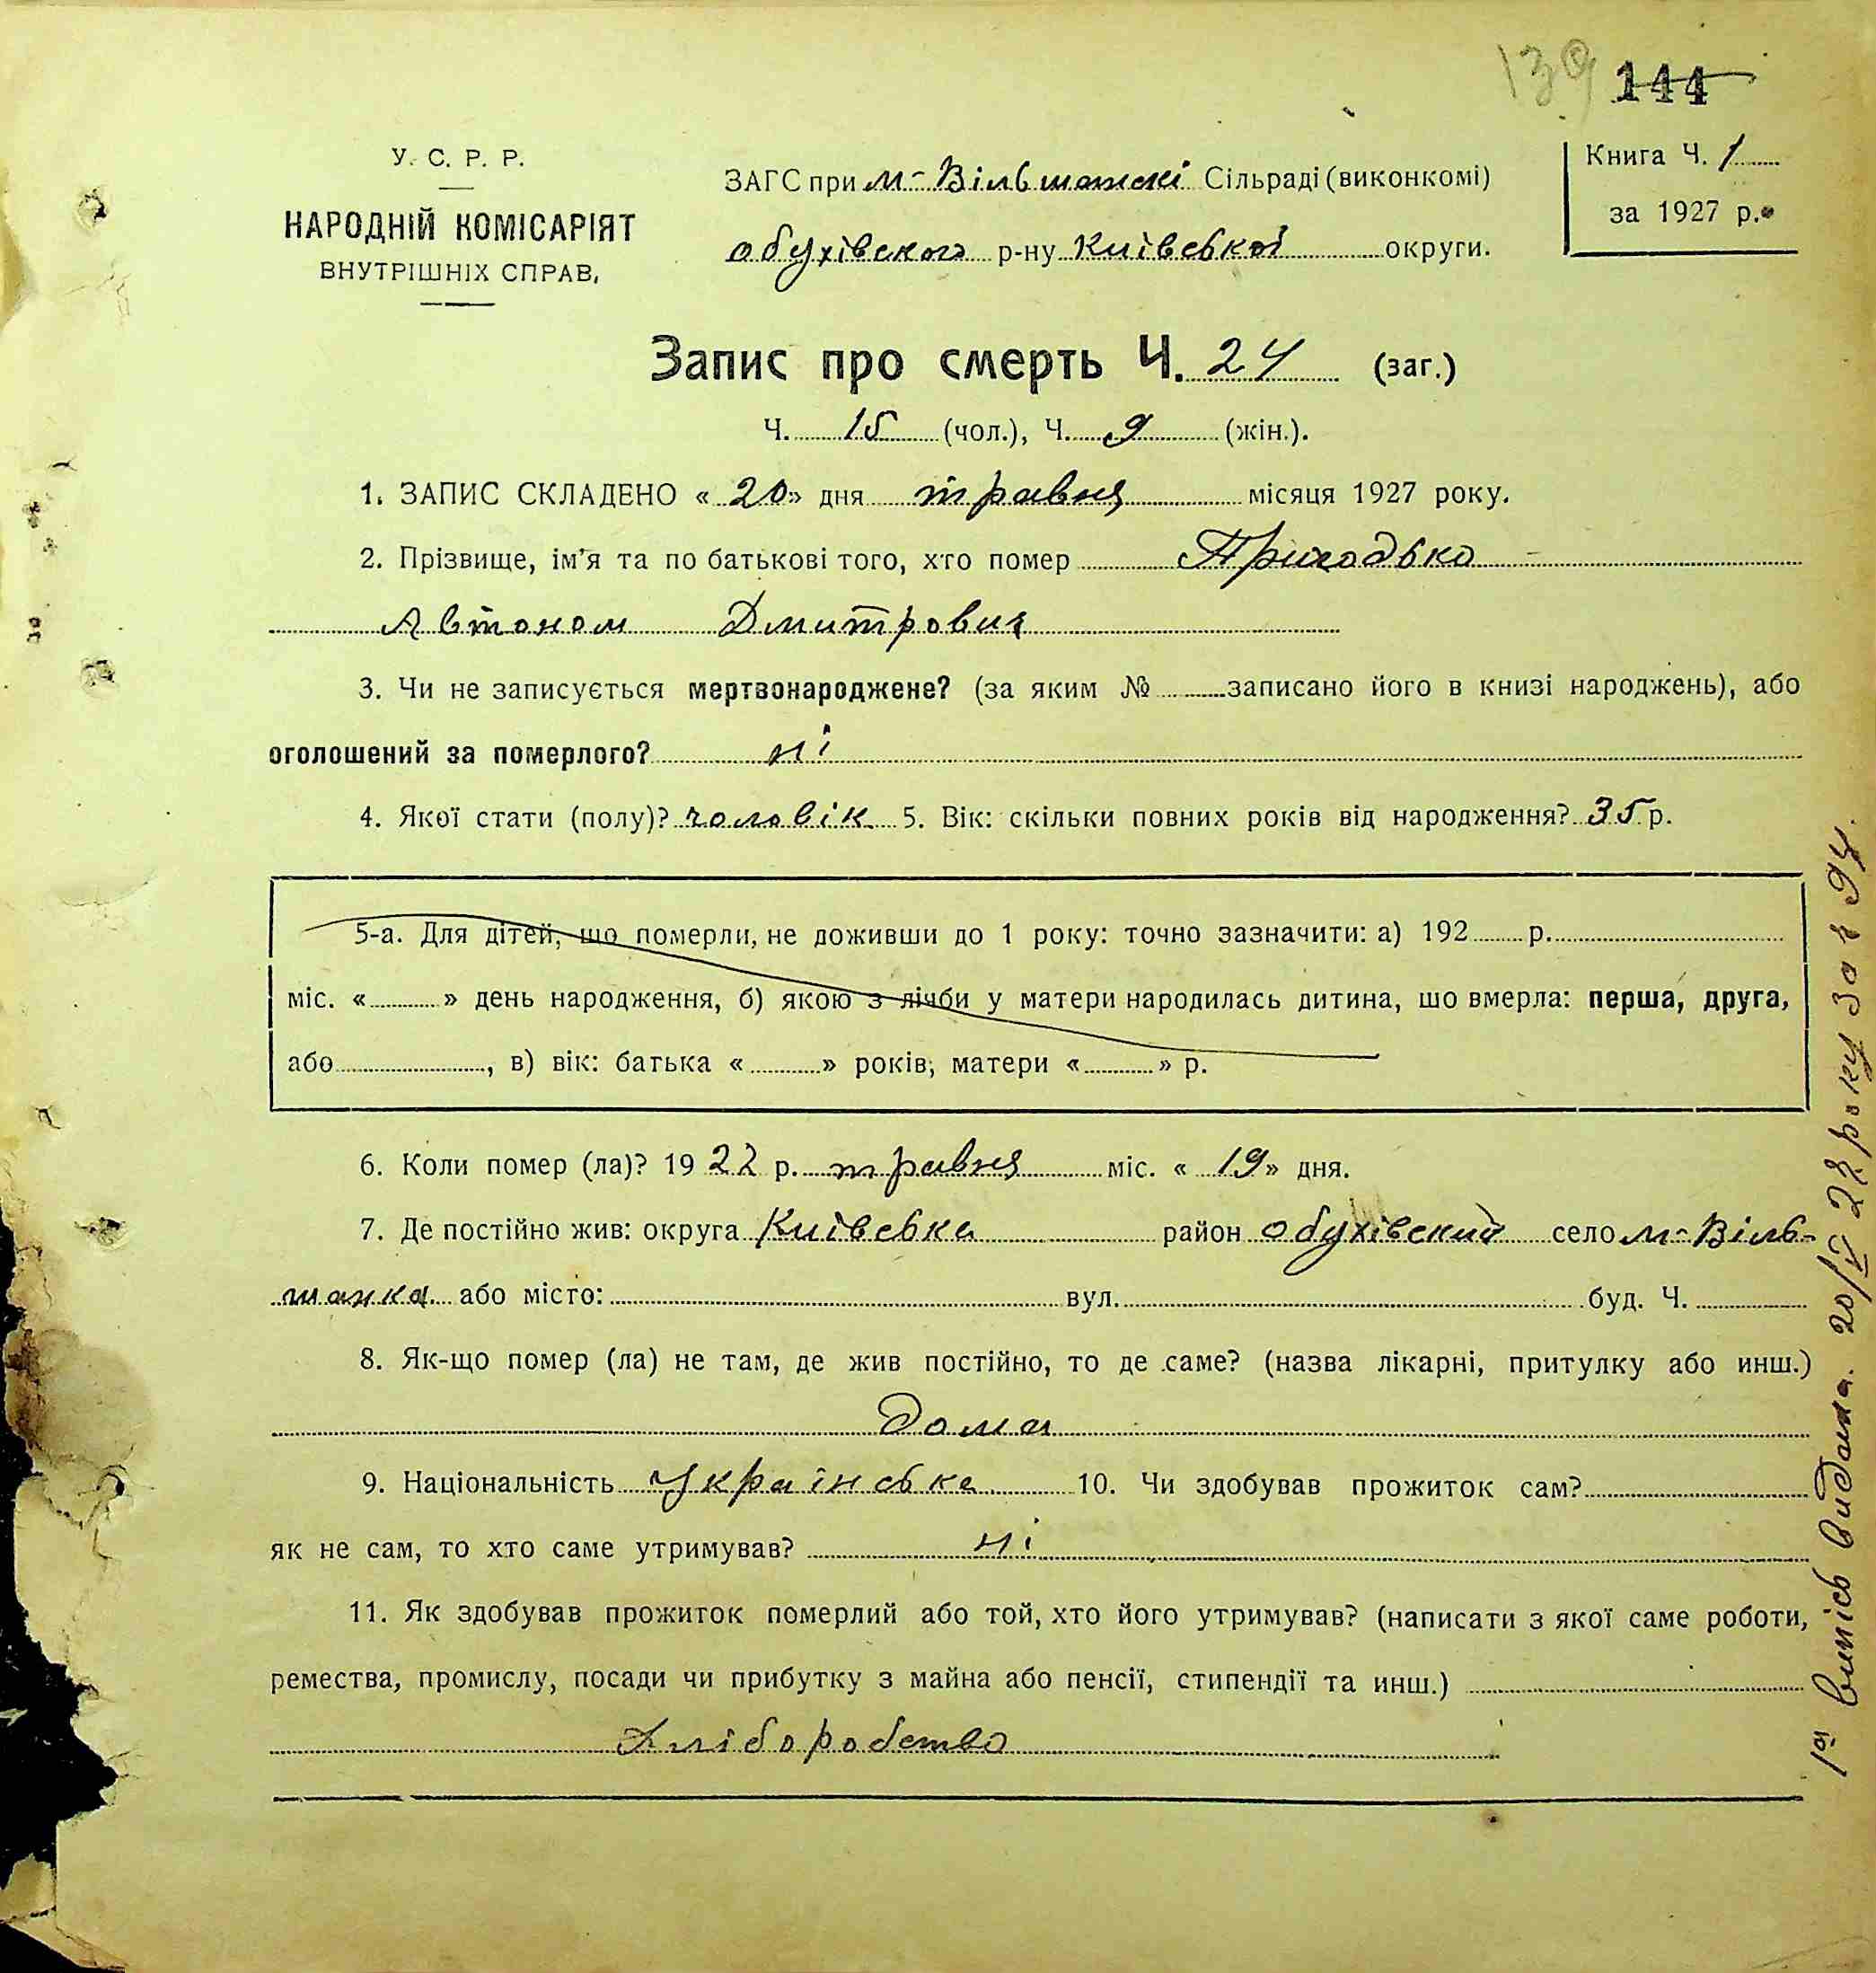 139 144
У. С. Р. Р.
НАРОДНІЙ КОМІСАРІЯТ
ВНУТРІШНІХ СПРАВ,
ЗАГС при м-Вільшанскі Сільраді (виконкомі)
обухівского р-ну Київської округи.
Книга Ч. 1
за 1927 р.
Запис про смерть Ч. 24 (заг.)
Ч. 15 (чол.), Ч. 9 (жін.).
1. ЗАПИС СКЛАДЕНО « 20 » дня травня місяця 1927 року.
2. Прізвище, ім'я та по батькові того, хто помер Пригодько
Автоном Дмитрович
3. Чи не записується мертвонароджене? (за яким № записано його в книзі народжень), або
оголошений за померлого? ні
4. Якої стати (полу)? чоловік 5. Вік: скільки повних років від народження? 35 р.
5-а. Для дітей, що померли, не доживши до 1 року: точно зазначити: а) 192 р.
міс. « » день народження, б) якою з лічби у матери народилась дитина, що вмерла: перша, друга,
або , в) вік: батька « » років, матери « » р.
6. Коли помер (ла)? 19 22 р. травня міс. « 19 » дня.
7. Де постійно жив: округа Київська район обухівский село м-Віль-
шанка або місто: вул. буд. Ч.
8. Як-що помер (ла) не там, де жив постійно, то де саме? (назва лікарні, притулку або инш.)
Дома
9. Національність Українська 10. Чи здобував прожиток сам?
як не сам, то хто саме утримував? ні
11. Як здобував прожиток померлий або той, хто його утримував? (написати з якої саме роботи,
ремества, промислу, посади чи прибутку з майна або пенсії, стипендії та инш.)
Хліборобство
випісь видана. 20/V 22 року за № 94.